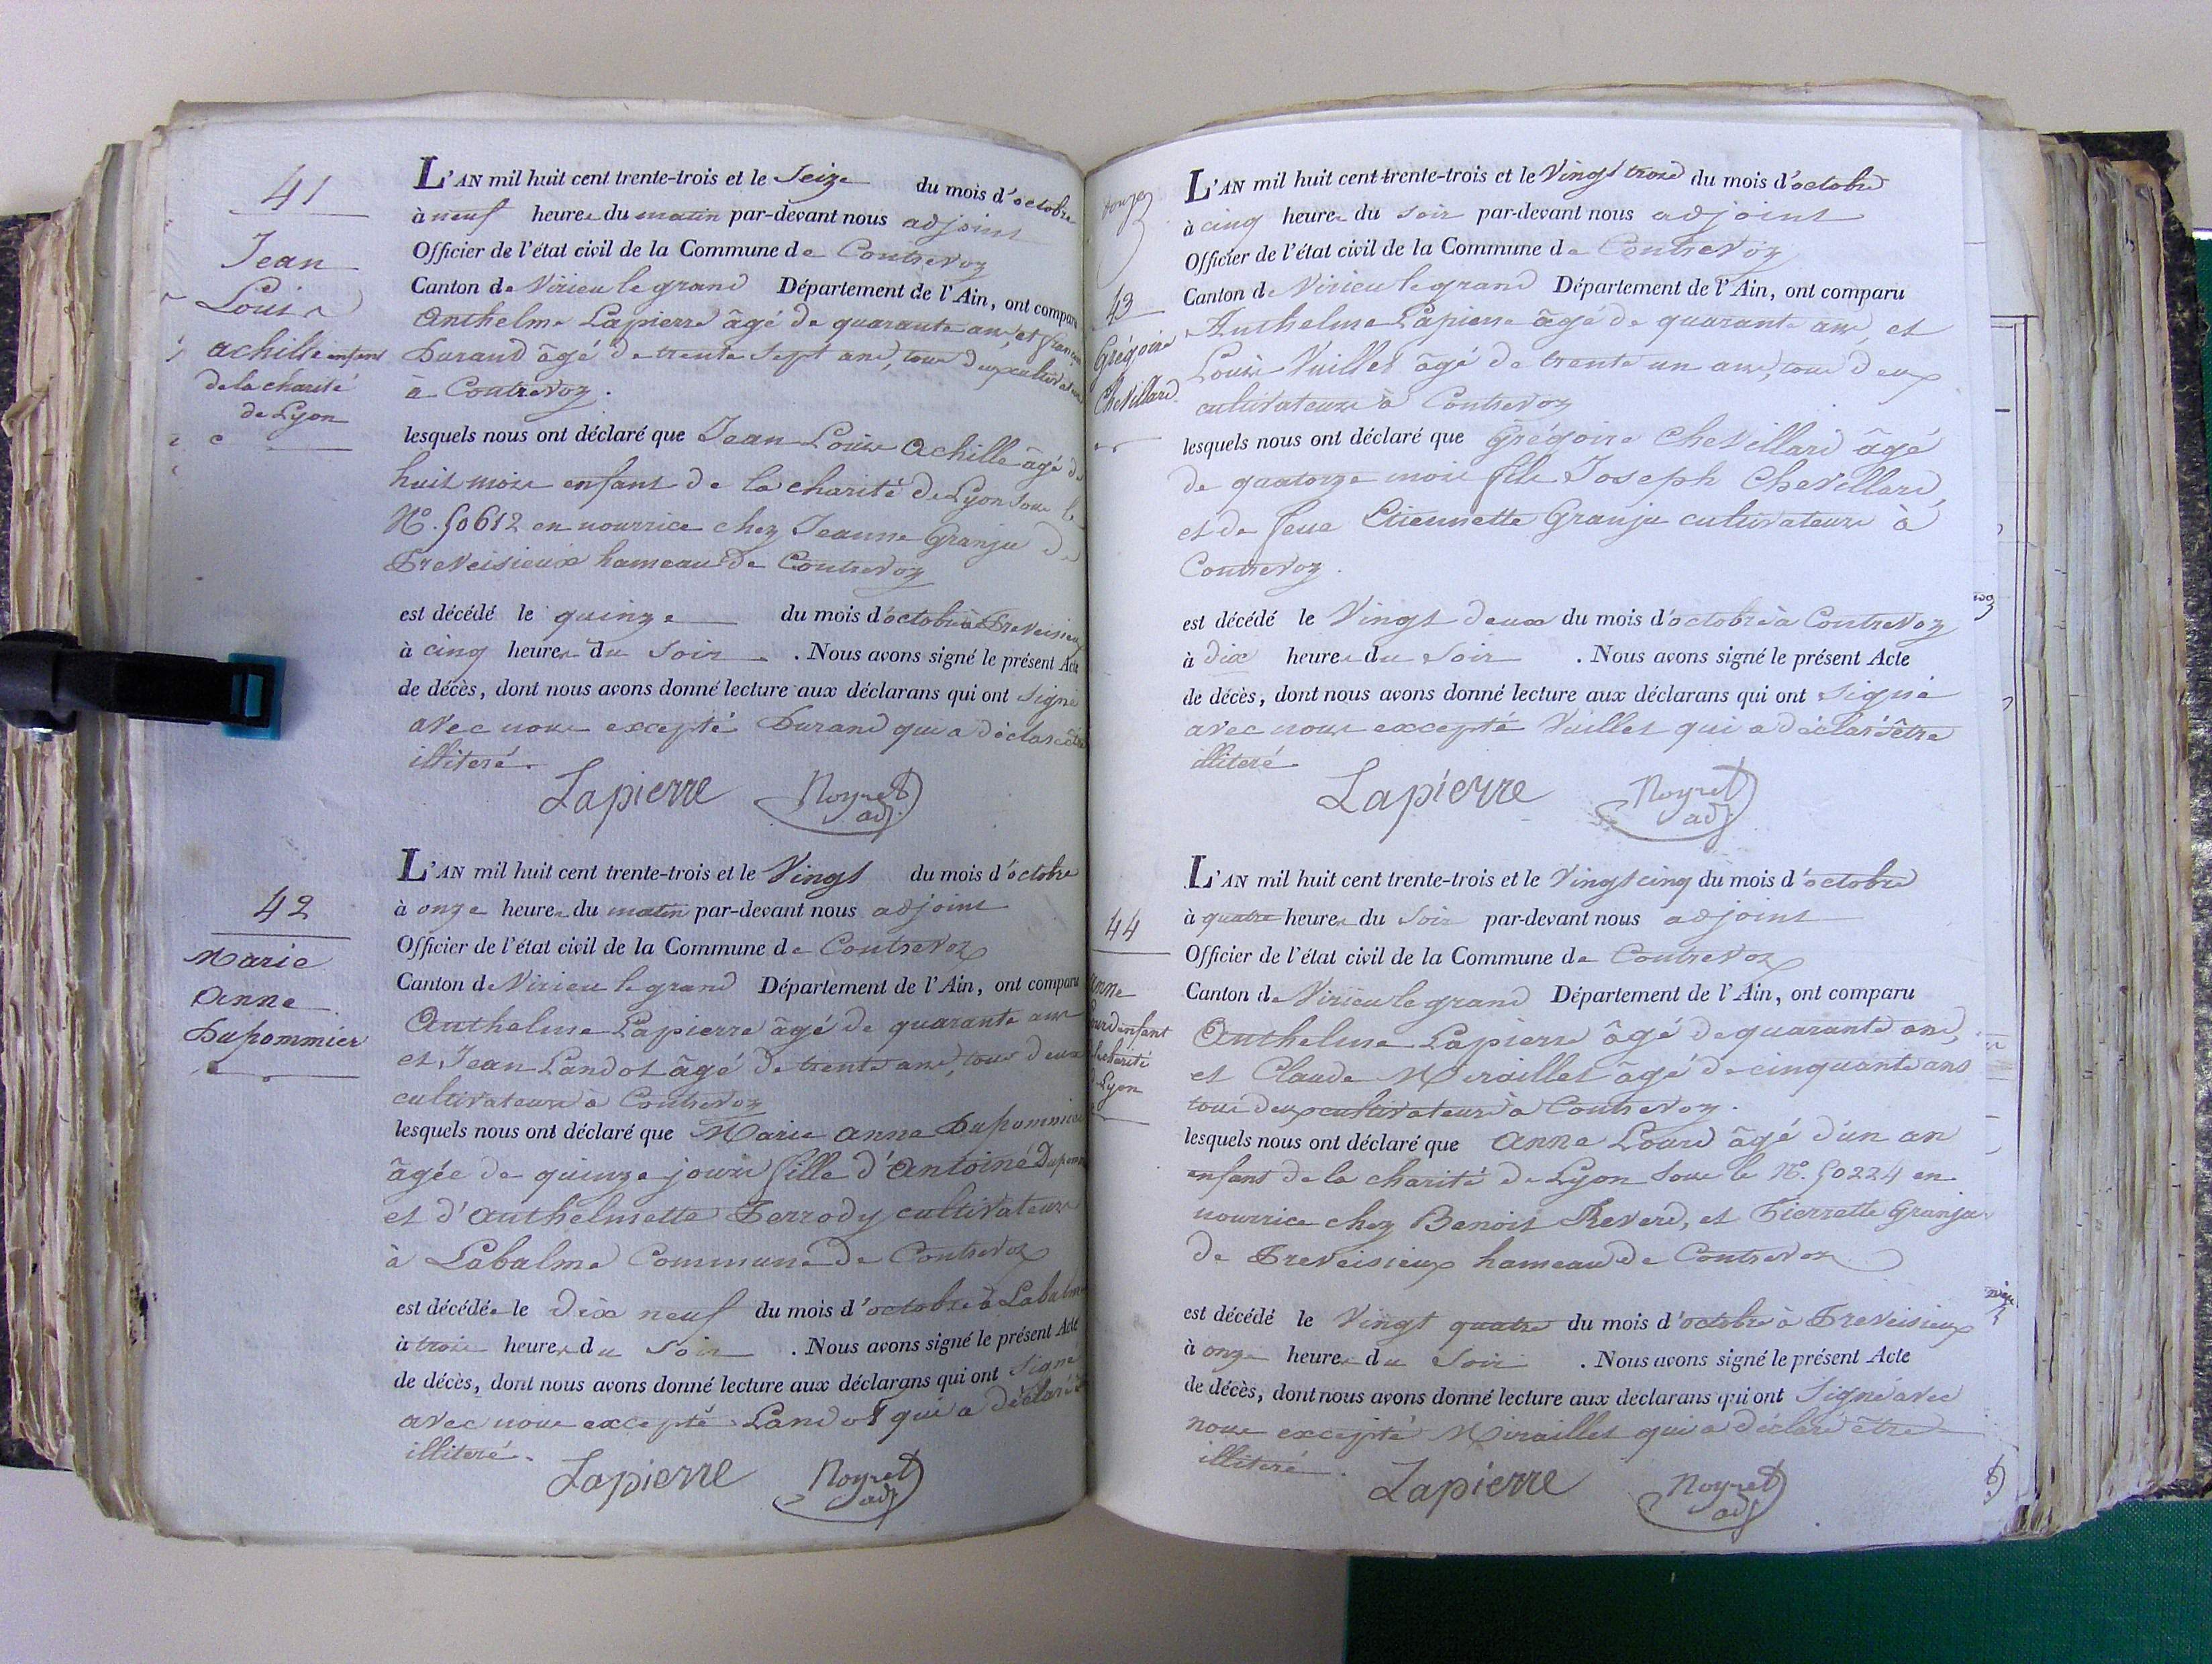 41
Jean
Louis
achille enfant
de la charité
de Lyon
L'AN mil huit cent trente-trois et le Seize du mois d'octobre
à neuf heures du matin par-devant nous adjoint
Officier de l'état civil de la Commune de Contrevoz
Canton de Virieu le grand Département de l'Ain, ont comparu
Anthelme Lapierre âgé de quarante ans, et
Durand âgé de trente sept ans, tous deux cultivateurs
à Contrevoz.
lesquels nous ont déclaré que Jean Louis Achille âgé de
huit mois enfant de la charité de Lyon sous le
N°. 50612 en nourrice chez Jeanne Granju de
Preveisieux hameau de Contrevoz
est décédé le quinze du mois d'octobre à Preveisieux
à cinq heures du Soir . Nous avons signé le présent Acte
de décès, dont nous avons donné lecture aux déclarans qui ont signé
avec nous excepté Durand qui a déclaré être
illiteré.
Lapierre Noyret
adj.
42
Marie
Anne
Dupommier
L'AN mil huit cent trente-trois et le Vingt du mois d'octobre
à onze heures du matin par-devant nous adjoint
Officier de l'état civil de la Commune de Contrevoz
Canton de Virieu le grand Département de l'Ain, ont comparu
Anthelme Lapierre âgé de quarante ans
et Jean Landot âgé de trente ans, tous deux
cultivateurs à Contrevoz
lesquels nous ont déclaré que Marie Anne Dupommier
âgée de quinze jours fille d'Antoine
et d'Anthelmette Ferrody cultivateurs
à Labalme Commune de Contrevoz
est décédée le Dix neuf du mois d'octobre à Labalme
à trois heures du Soir . Nous avons signé le présent Acte
de décès, dont nous avons donné lecture aux déclarans qui ont Signé
avec nous excepté Landot qui a déclaré
illiteré.
Lapierre Noyret
adj
43
Grégoire
Chevillard
L'AN mil huit cent trente-trois et le Vingt trois du mois d'octobre
à cinq heures du Soir par-devant nous adjoint
Officier de l'état civil de la Commune de Contrevoz
Canton de Virieu le grand Département de l'Ain, ont comparu
Anthelme Lapierre âgé de quarante ans, et
Louis Vuillet âgé de trente un ans, tous deux
cultivateurs à Contrevoz
lesquels nous ont déclaré que Grégoire Chevillard âgé
de quatorze mois fils Joseph Chevillard,
et de feue Etiennette Granju cultivateurs à
Contrevoz.
est décédé le Vingt deux du mois d'octobre à Contrevoz
à Dix heures du Soir . Nous avons signé le présent Acte
de décès, dont nous avons donné lecture aux déclarans qui ont Signé
avec nous excepté Vuillet qui a déclaré être
illiteré
Lapierre Noyret
adj
44
anne
enfant
charité
Lyon
L'AN mil huit cent trente-trois et le Vingt cinq du mois d'octobre
à quatre heures du Soir par-devant nous adjoint
Officier de l'état civil de la Commune de Contrevoz
Canton de Virieu le grand Département de l'Ain, ont comparu
Anthelme Lapierre âgé de quarante ans,
et Claude Miraillet âgé de cinquante ans
tous deux cultivateurs à Contrevoz.
lesquels nous ont déclaré que Anne Lourd âgé d'un an
enfant de la charité de Lyon sous le N°. 50224 en
nourrice chez Benoit Reverd, et Pierrette Granju
de Preveisieux hameau de Contrevoz
est décédé le Vingt quatre du mois d'octobre à Preveisieux
à onze heures du Soir . Nous avons signé le présent Acte
de décès, dont nous avons donné lecture aux déclarans qui ont Signé avec
nous excepté Miraillet qui a déclaré être
illiteré.
Lapierre Noyret
adj